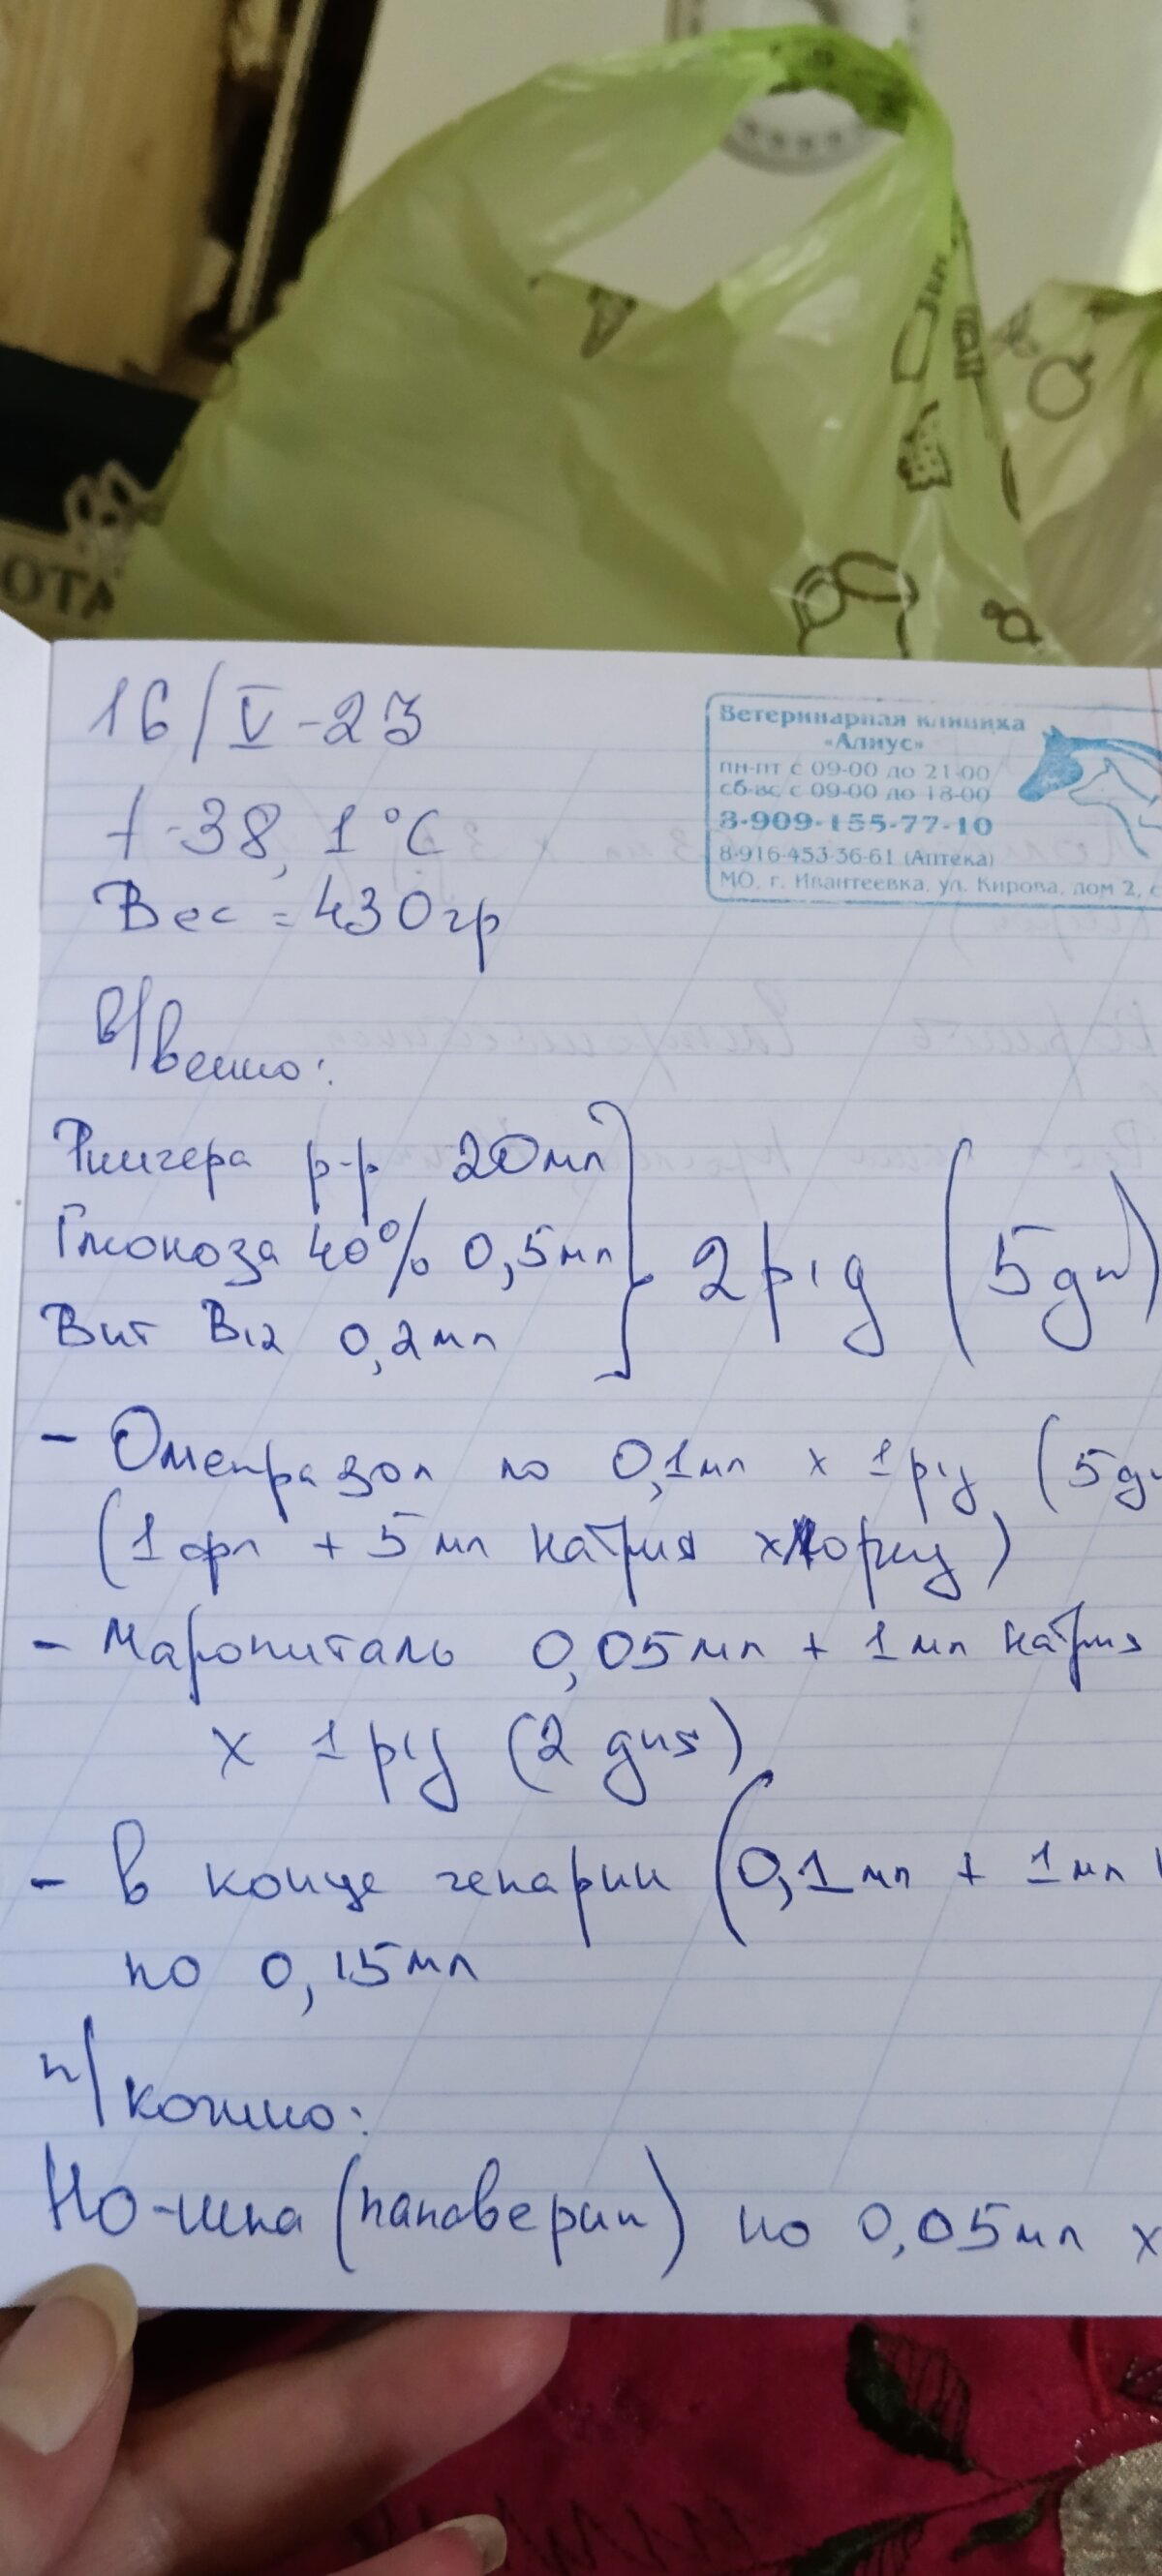 ОТА
16/V-23
Ветеринарная клиника
«Алиус»
пн-пт с 09-00 до 21-00
сб-вс с 09-00 до 18-00
8-909-155-77-10
8-916-453-36-61 (Аптека)
МО, г. Ивантеевка, ул. Кирова, дом 2, с
t-38,1°C
Вес = 430гр
В/венно:
Рингера р-р 20мл
Глюкоза 40% 0,5мл
Вит B12 0,2мл
2р/д (5дн)
- Омепразол по 0,1мл х 1р/д (5дн
(1фл + 5мл натрия хлорид)
- Маропиталь 0,05мл + 1мл натрия
х 1р/д (2 дня)
- В конце гепарин (0,1мл + 1мл
по 0,15мл
п/кожно:
Но-шпа (папаверин) по 0,05мл х